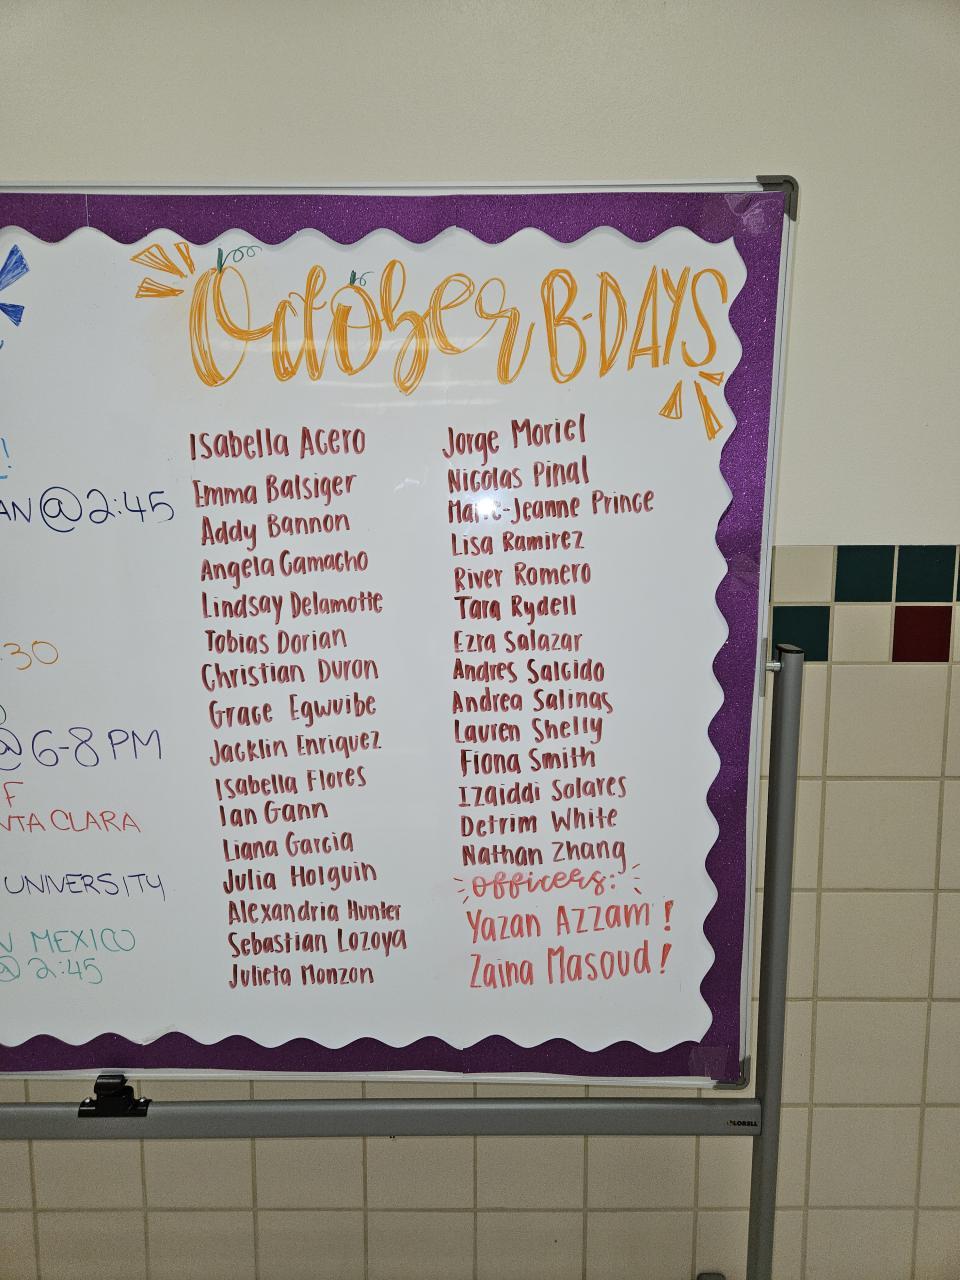 !
AN @ 2:45
:30
@ 6-8 PM
F
NTA CLARA
UNIVERSITY
N MEXICO
@ 2:45
October B-DAYS
Isabella Acero
Emma Balsiger
Addy Bannon
Angela Camacho
Lindsay Delamotte
Tobias Dorian
Christian Duron
Grace Egwuibe
Jacklin Enriquez
Isabella Flores
Ian Gann
Liana Garcia
Julia Holguin
Alexandria Hunter
Sebastian Lozoya
Julieta Monzon
Jorge Moriel
Nicolas Pinal
Marie-Jeanne Prince
Lisa Ramirez
River Romero
Tara Rydell
Ezra Salazar
Andres Salcido
Andrea Salinas
Lauren Shelly
Fiona Smith
Izaiddi Solares
Detrim White
Nathan Zhang
officers:
Yazan Azzam!
Zaina Masoud!
LORELL